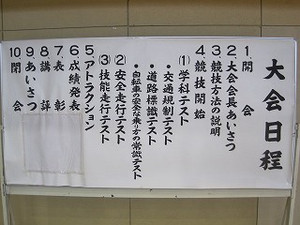 大会日程
1 開会
2 大会会長あいさつ
3 競技方法の説明
4 競技開始
(1) 学科テスト
・交通規制テスト
・道路標識テスト
・自転車の安全な乗り方の常識テスト
(2) 安全走行テスト
(3) 技能走行テスト
5、アトラクション
6 成績発表
7 表彰
8 講評
9 あいさつ
10 閉会